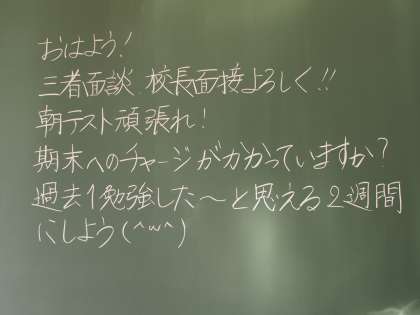 おはよう!
三者面談 校長面接よろしく!!
朝テスト頑張れ!
期末へのチャージがかかっていますか?
過去1勉強した〜と思える2週間
にしよう(^w^)